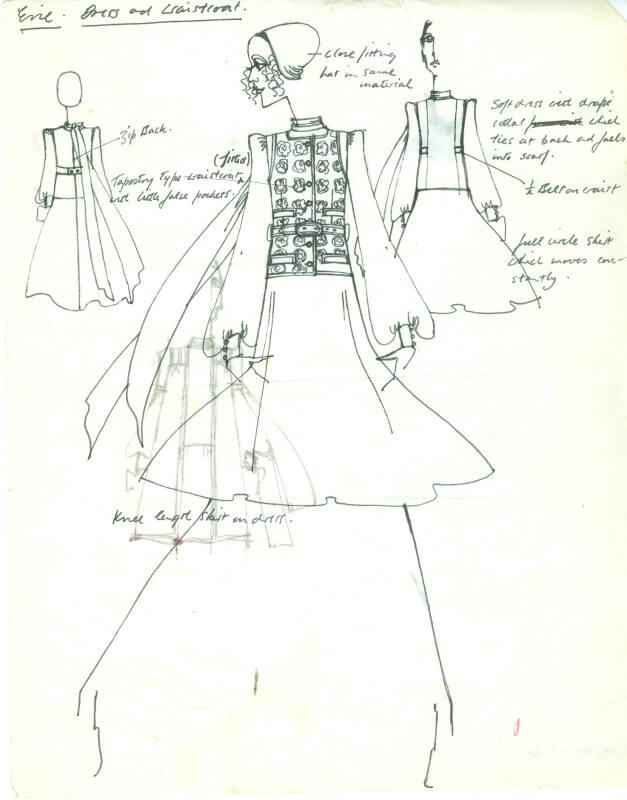 Evie. Dress and Waistcoat.
close fitting
hat in same
material
Zip Back.
(fitted)
Tapestry Type Waistcoat
with little false pockets.
Soft dress with drape
collar which
ties at back and falls
into scarf.
½ Belt on waist
full circle skirt
which moves con-
stantly.
Knee length skirt on dress.